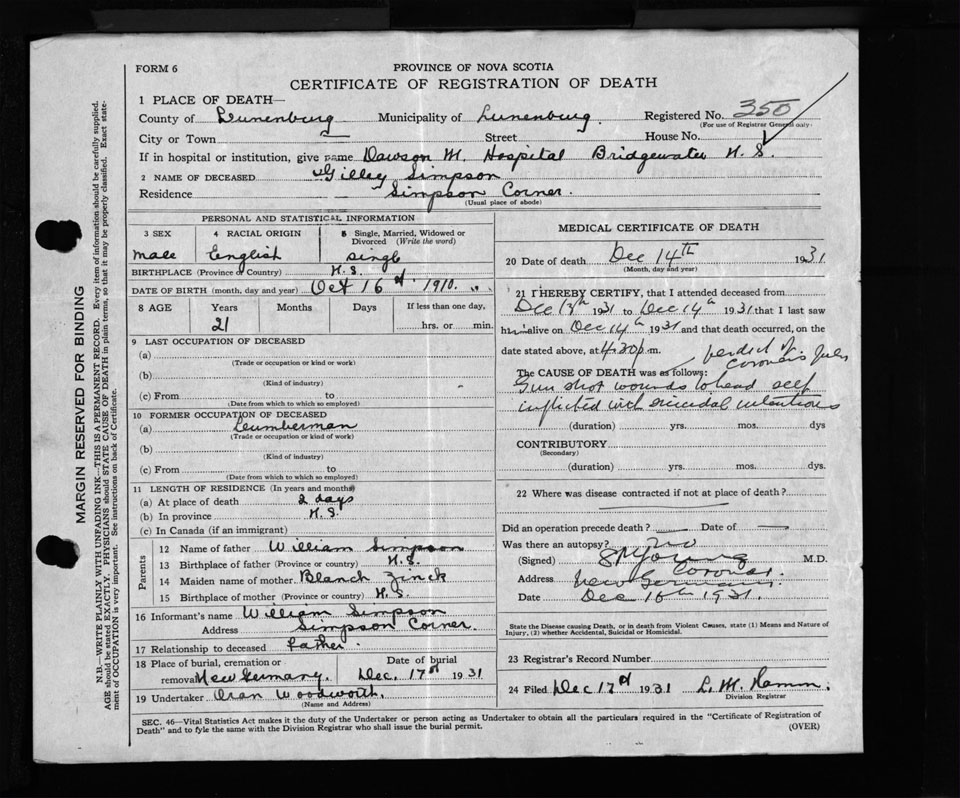 FORM 6
PROVINCE OF NOVA SCOTIA
CERTIFICATE OF REGISTRATION OF DEATH
1 PLACE OF DEATH—
County of Lunenburg Municipality of Lunenburg. Registered No. 350
(For use of Registrar General only)
City or Town Street House No.
If in hospital or institution, give name Dawson M. Hospital Bridgewater N.S.
2 NAME OF DECEASED Simpson
Residence Simpson Corner.
(Usual place of abode)
PERSONAL AND STATISTICAL INFORMATION
3 SEX 4 RACIAL ORIGIN 5 Single, Married, Widowed or Divorced (Write the word)
male English Single
BIRTHPLACE (Province or Country) N.S.
DATE OF BIRTH (month, day and year) Oct 16 1910.
8 AGE Years Months Days If less than one day,
21 hrs. or min.
9 LAST OCCUPATION OF DECEASED
(a)
(Trade or occupation or kind or work)
(b)
(Kind of industry)
(c) From to
(Date from which to which so employed)
10 FORMER OCCUPATION OF DECEASED
(a) Lumberman
(Trade or occupation or kind of work)
(b)
(Kind of industry)
(c) From to
(Date from which to which so employed)
11 LENGTH OF RESIDENCE (In years and months)
(a) At place of death 2 days
(b) In province N.S.
(c) In Canada (if an immigrant)
Parents
12 Name of father William Simpson
13 Birthplace of father (Province or country) N.S.
14 Maiden name of mother Blanch Zinck
15 Birthplace of mother (Province or country) N.S.
16 Informant's name William Simpson
Address Simpson Corner.
17 Relationship to deceased Father.
18 Place of burial, cremation or removal New Germany. Date of burial Dec. 17 1931
19 Undertaker Oran Woodworth.
(Name and Address)
MEDICAL CERTIFICATE OF DEATH
20 Date of death Dec 14th 1931
(Month, day and year)
21 I HEREBY CERTIFY, that I attended deceased from
Dec 13th 1931 to Dec 14th 1931 that I last saw
him alive on Dec 14th 1931 and that death occurred, on the
date stated above, at 4.30 p.m.
verdict of coroner's
The CAUSE OF DEATH was as follows:
Gun shot wounds to head self
inflicted with suicidal intentions
(duration) yrs. mos. dys
CONTRIBUTORY
(Secondary)
(duration) yrs. mos. dys.
22 Where was disease contracted if not at place of death?
Did an operation precede death? — Date of —
Was there an autopsy? No
(Signed) Young M.D.
Coroner.
Address New Germany.
Date Dec 16th 1931.
State the Disease causing Death, or in death from Violent Causes, state (1) Means and Nature of
Injury, (2) whether Accidental, Suicidal or Homicidal.
23 Registrar's Record Number
24 Filed Dec 17 1931 L. M.
Division Registrar
SEC. 46—Vital Statistics Act makes it the duty of the Undertaker or person acting as Undertaker to obtain all the particulars required in the "Certificate of Registration of
Death" and to fyle the same with the Division Registrar who shall issue the burial permit. (OVER)
MARGIN RESERVED FOR BINDING
N.B.—WRITE PLAINLY WITH UNFADING INK—THIS IS A PERMANENT RECORD. Every item of information should be carefully supplied.
AGE should be stated EXACTLY. PHYSICIANS should STATE CAUSE OF DEATH in plain terms, so that it may be properly classified. Exact state-
ment of OCCUPATION is very important. See instructions on back of Certificate.